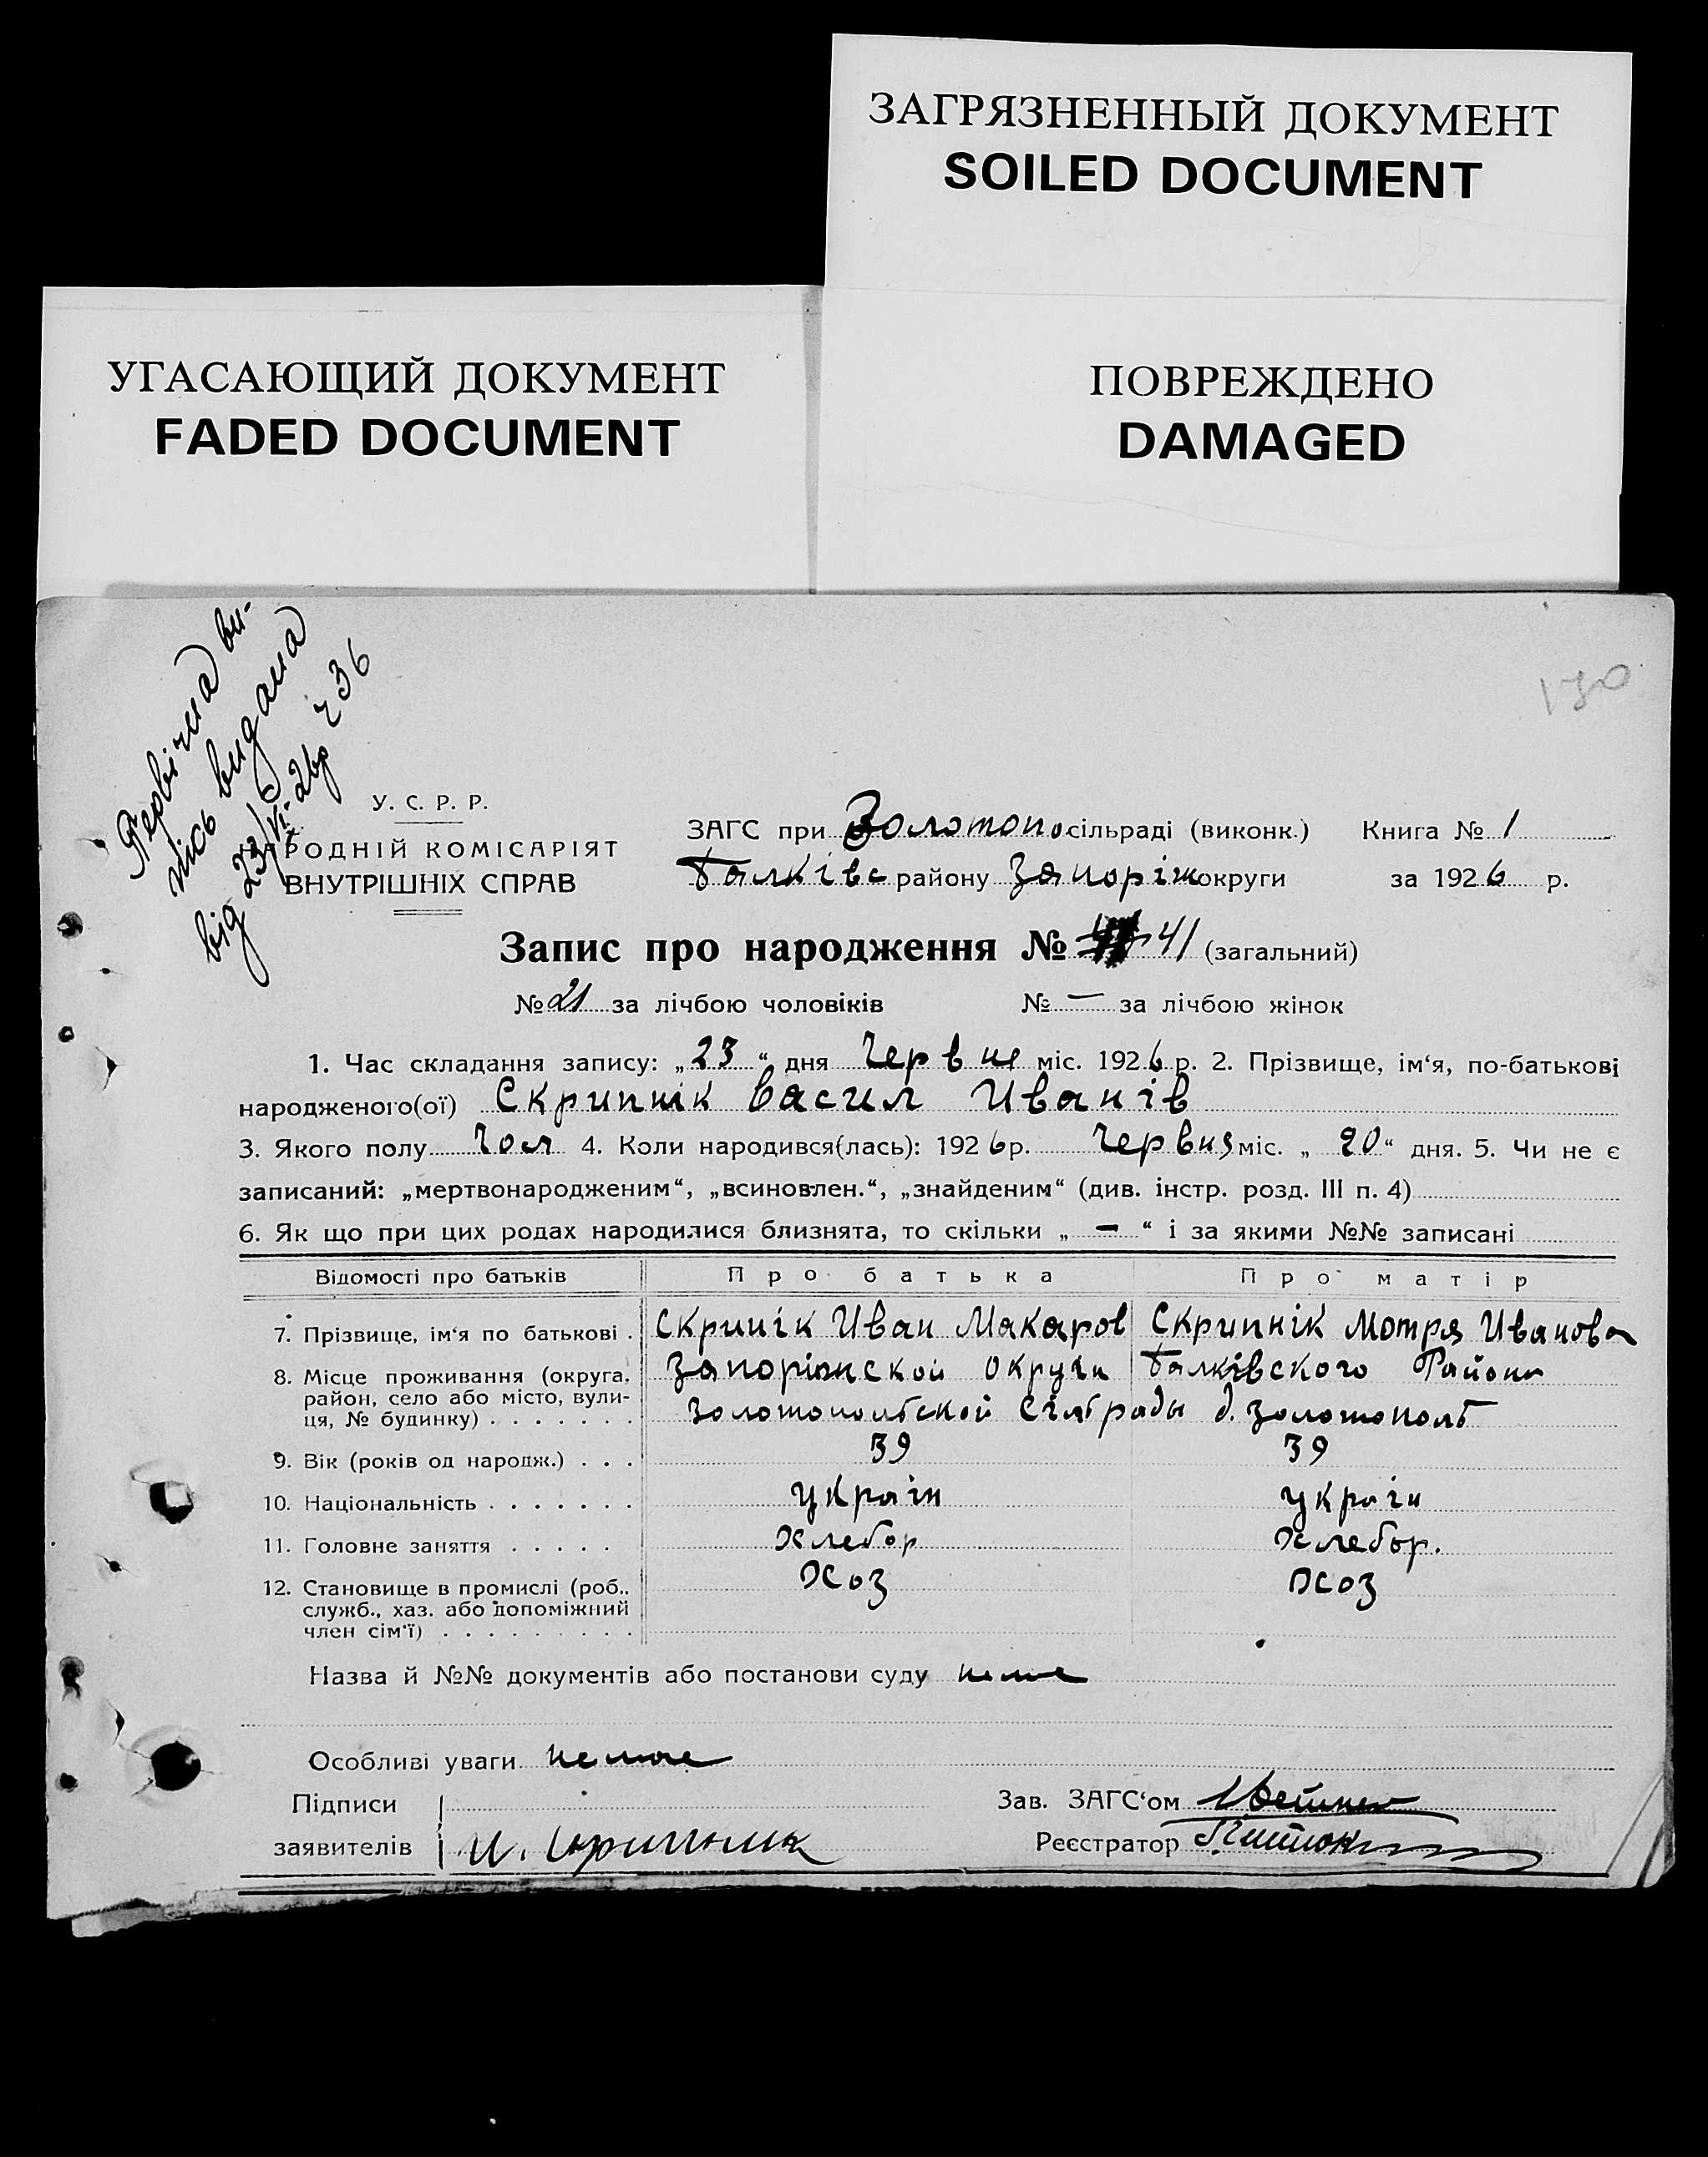 ЗАГРЯЗНЕННЫЙ ДОКУМЕНТ
SOILED DOCUMENT
УГАСАЮЩИЙ ДОКУМЕНТ
FADED DOCUMENT
ПОВРЕЖДЕНО
DAMAGED
Первична ви-
пись видана
від 23/VI-26р ч 36
У. С. Р. Р.
РОДНІЙ КОМІСАРІЯТ
ВНУТРІШНІХ СПРАВ
ЗАГС при Золотопо сільраді (виконк.) Книга № 1
Балківс району Запоріж округи за 1926 р.
Запис про народження № 41 (загальний)
№ 21 за лічбою чоловіків № — за лічбою жінок
1. Час складання запису: „23“ дня Червня міс. 1926 р. 2. Прізвище, ім‘я, по-батькові
народженого(ої) Скрипнік Васил Иванів
3. Якого полу чол 4. Коли народився(лась): 1926 р. Червня міс. „20“ дня. 5. Чи не є
записаний: „мертвонародженим“, „всиновлен.“, „знайденим“ (див. інстр. розд. III п. 4)
6. Як що при цих родах народилися близнята, то скільки „—“ і за якими №№ записані
Відомості про батьків Про батька Про матір
7. Прізвище, ім‘я по батькові . Скрипік Иван Макаров Скрипнік Мотря Иванова
8. Місце проживання (округа, Запоріжской округи Балківского Району
район, село або місто, вули-
ця, № будинку) . . . . . . . Золотопольской Сільради д. Золотополь
9. Вік (років од народж.) . . . 39 39
10. Національність . . . . . . . україн україн
11. Головне заняття . . . . . Хлебор Хлебор.
12. Становище в промислі (роб., Хоз Хоз
служб., хаз. або допоміжний
член сім‘ї) . . . . . . . . .
Назва й №№ документів або постанови суду нема
Особливі уваги немае
Підписи Зав. ЗАГС‘ом
заявителів И. Скрипник Реєстратор